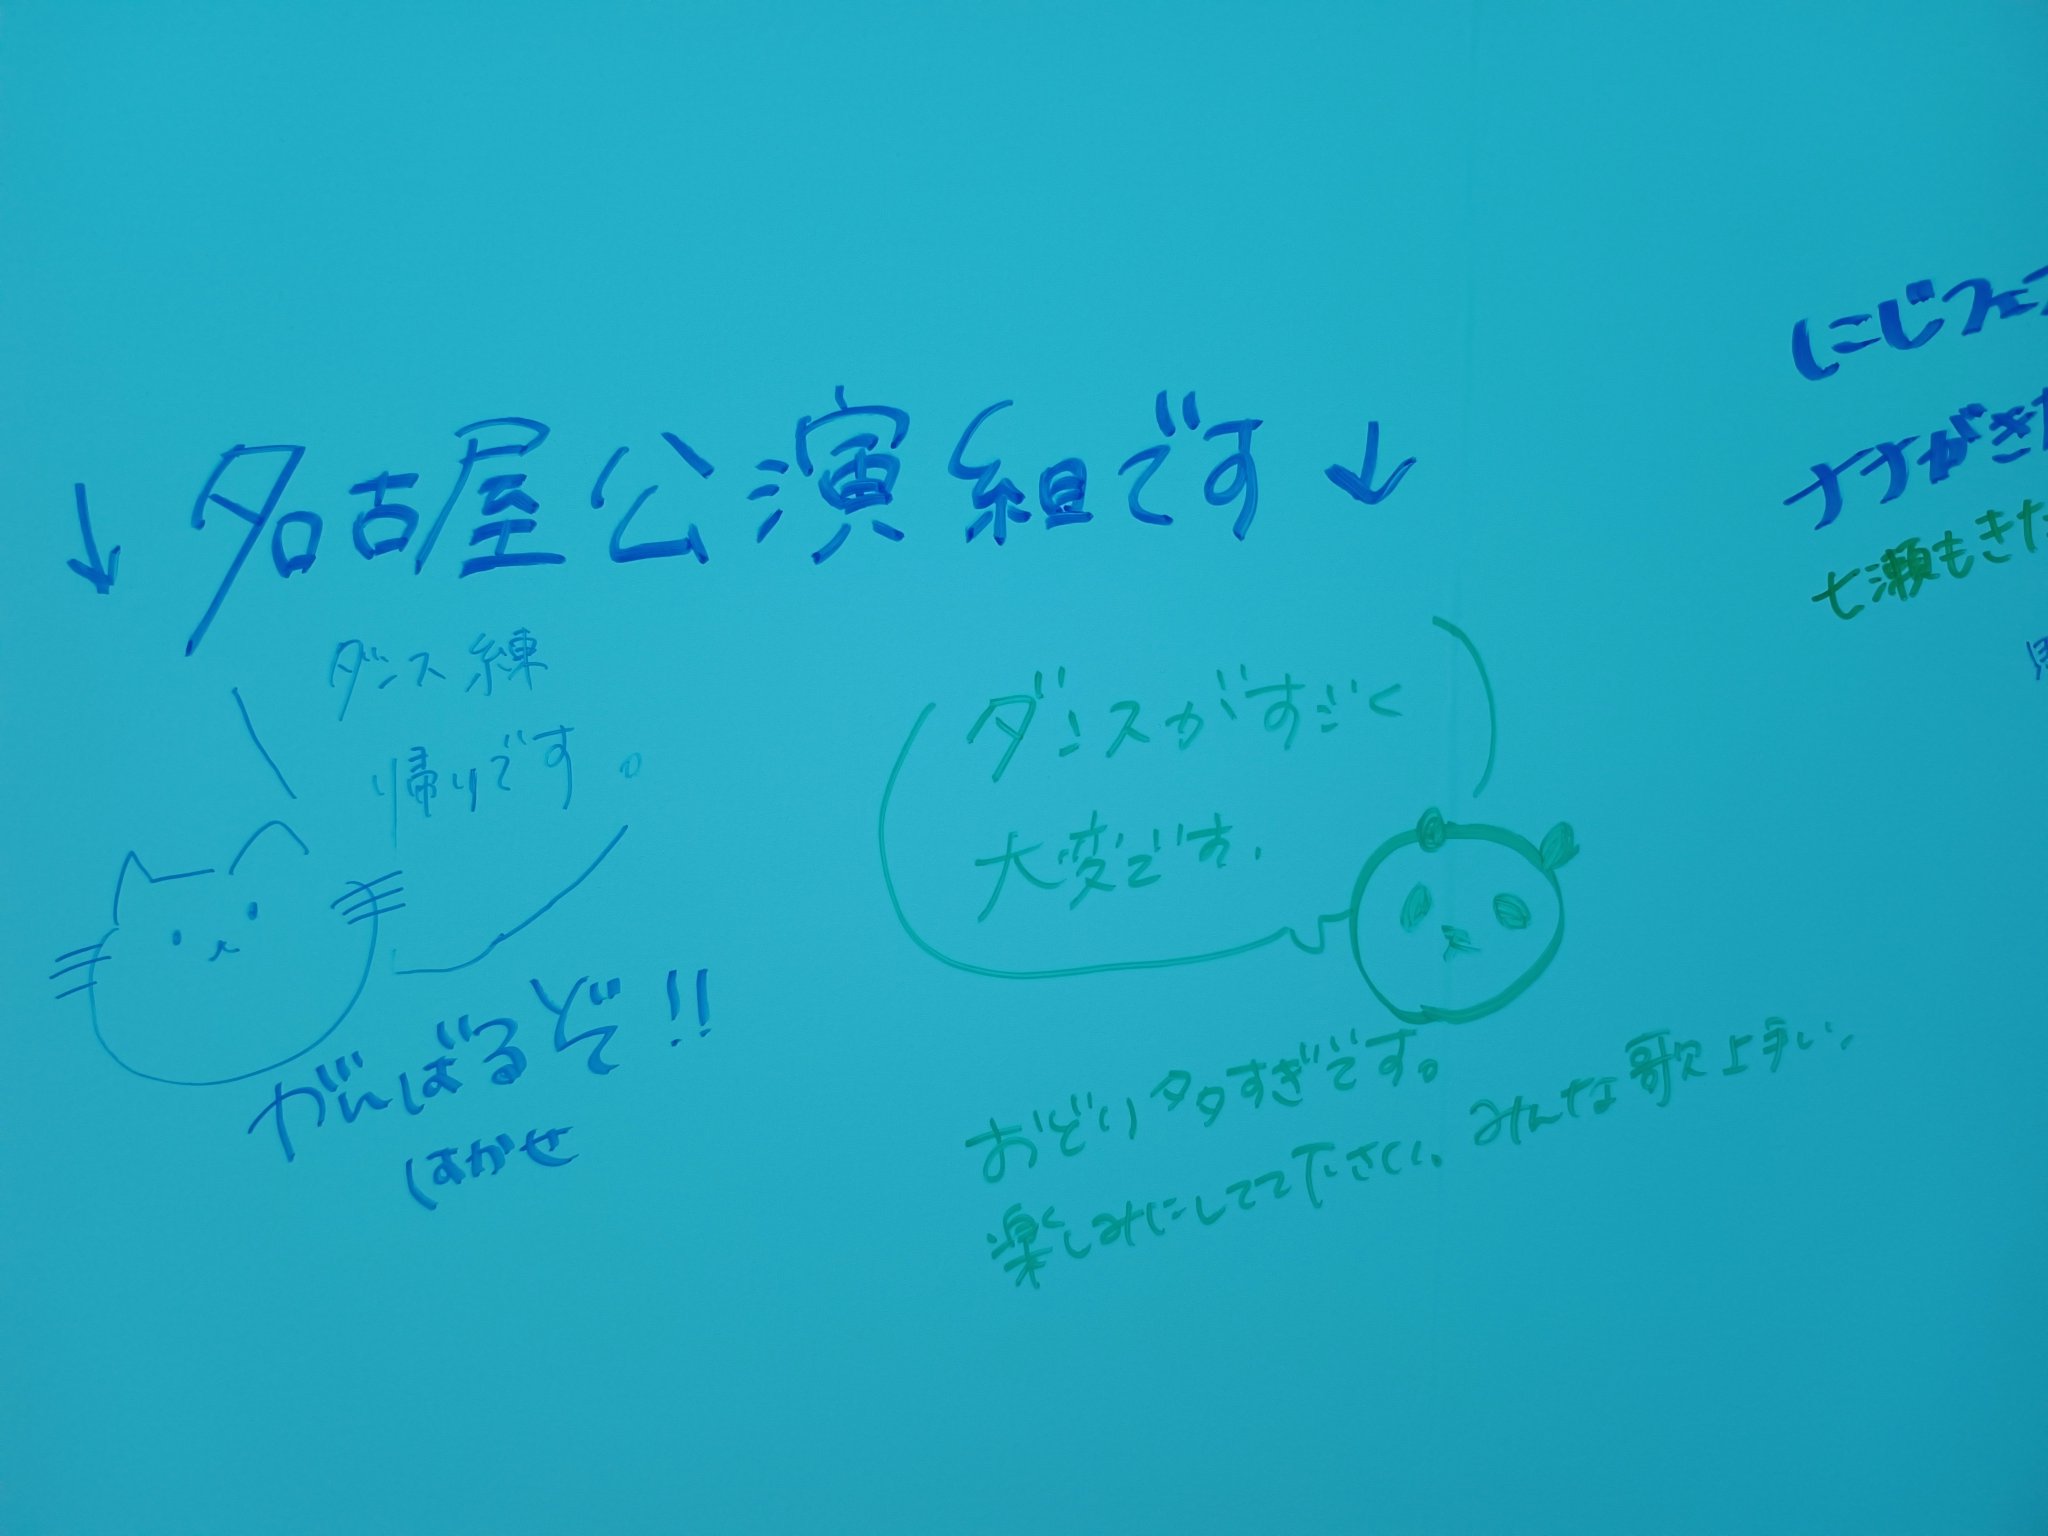 ↓名古屋公演組です↓
ダンス練
帰りです。
がんばるぞ!!
はかせ
ダンスがすごく
大変です.
おどり多すぎです。
楽しみにしてて下さい。みんな歌上手い.
にじフェ
ナナがき
七瀬もきた